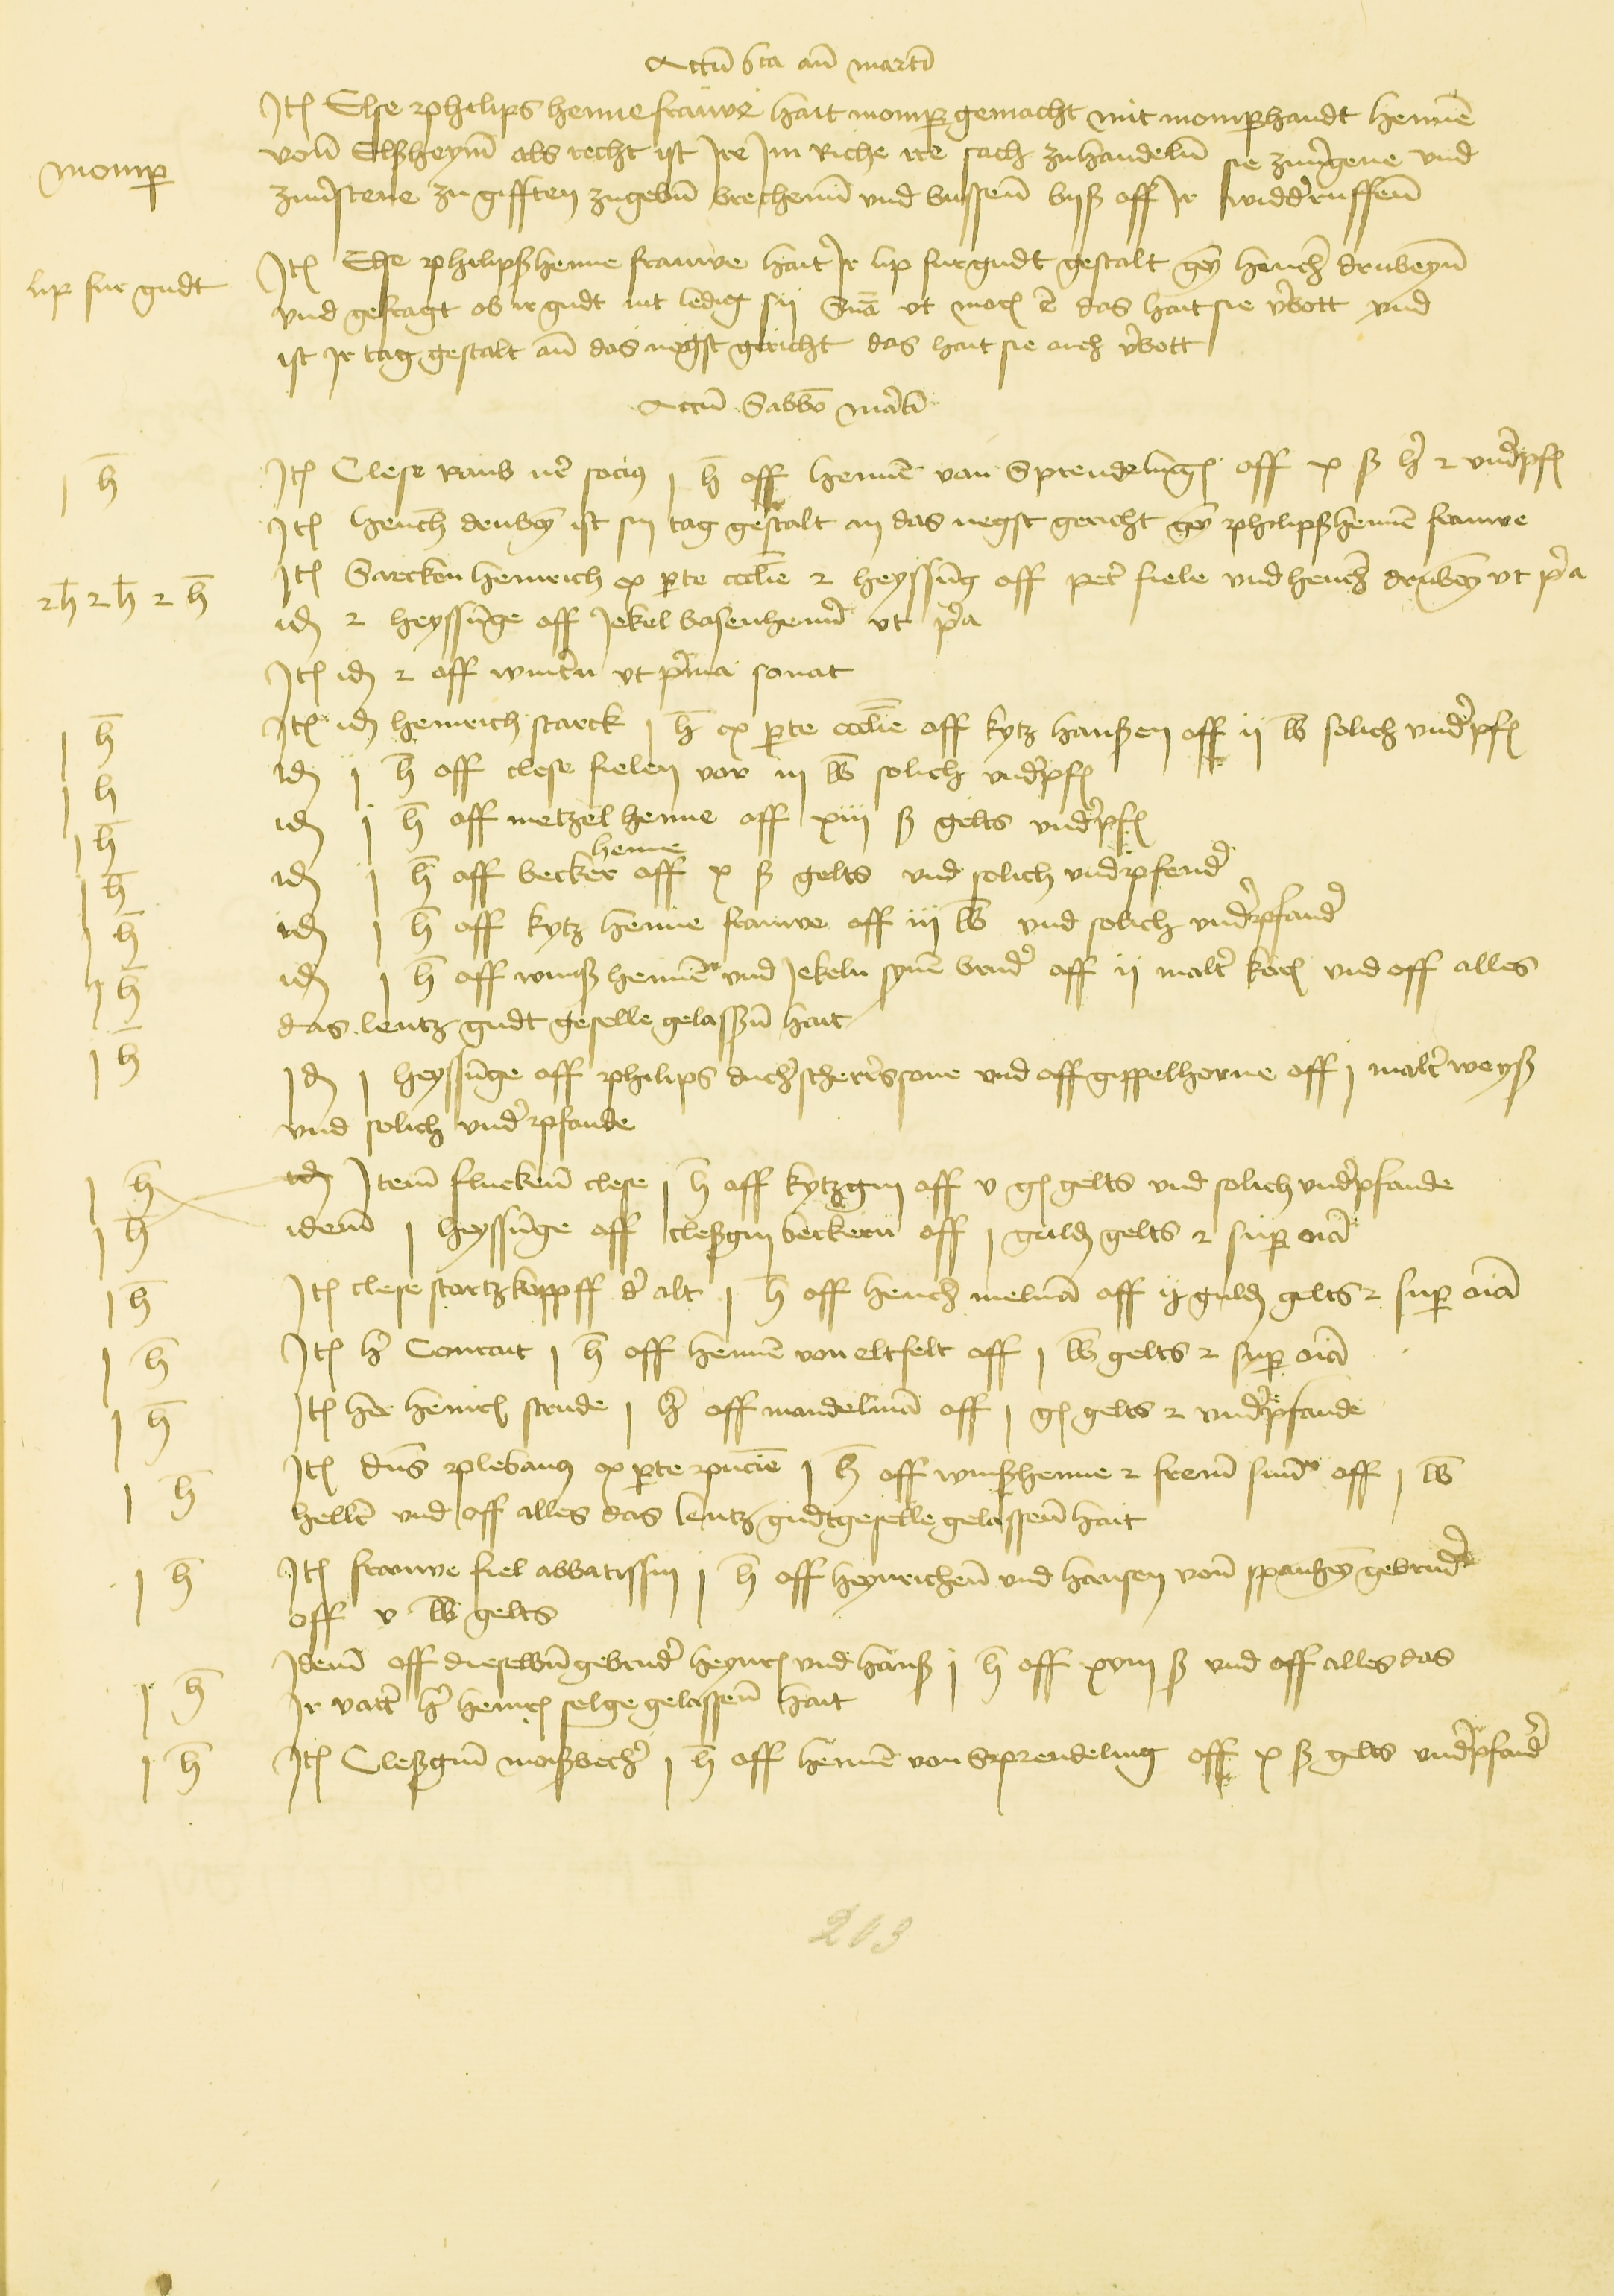 Actū 6ta an̄ martī
Itē Else philips henne frauwe hait momp gemacht mit momphandt hennē
momp
von̄ Elßheym̄ als recht ist Ire Im riche ire sach zuhandeln̄ sie zuv'gene und
zuv'stene zu gifften zugebn̄ brechenn̄ und bussen̄ byß off Ir widd'ruffen̄
lip fur gudt
Itē Else philipßhenne frauwe hait Ir lip fur gudt gestalt gey hench' drubeyn̄
und gefragt ob ir gudt nit ledig sij das hait sie v'bott und
ist Ir tag gestalt an̄ das negst gericht das hait sie auch v'bott
Actū Sabbō m'tī
I h̄ Itē Clese raub socius I h̄ off hennē von Sprendelingē off x ß h' 2 und'pfē
Itē hench drubey ist sin tag gestalt an das negst gericht gey philipßhennē frauwe
2h̄ 2h̄ 2 h̄
Itē Starcken henrich ex pte eccl̄ie 2 heyssūg off pet' fiele und hench' drubey ut p'a
id 2 heyssūge off Jekel basenhenn' ut p'a
Itē id 2 off wint'n ut p'ma sonat
I h̄ Itē id henrich starck I h̄ ex pte eccl̄ie off kytz hanßen off ij lb solich und'pfē
I h̄ id I h̄ off clese fielen vor iij lb solich und'pfē
I h̄ id I h̄ off metzel henne off xiij ß gelts und'pfē
henne
I h̄ id I h̄ off becker off x ß gelts und solich und'pfend'
I h̄ id I h̄ off kytz henne frauwe off iij lb und solich und'pfand'
I h̄ id I h̄ off winß hennē und Jekeln synē brud' off ij malt' korē und off alles
das lentz gudt geselle gelassen̄ hait
I h̄ Id I heyssūge off philips duch'scherers sone und off gippelhorne off I malt' weyß
und solich und'pfande
I h̄ id Item̄ flucken̄ clese I h̄ off kytzgin off v gē gelts und solich und'pfande
I h̄ idem̄ I heyssūge off cleßgin beckern off I guldē gelts 2 sup oīa
I h̄ Itē clese stortzkopff d' alt I h̄ off hench' melmā off ij guldē gelts 2 sup oīa
I h̄ Itē h' Conrait I h̄ off hennē von eltfelt off I lb gelts 2 sup oīa
I h̄ Itē her henrē strude I h' off mandelmā off I gē gelts 2 und'pfande
I h̄ Itē dn̄s plebanus ex pte I h̄ off winßhenne 2 off I lb
hell' und off alles das lentz gudtgeselle gelassen̄ hait
I h̄ Itē frauwe fiel abbatissin I h̄ off heynrichen̄ und hansen von̄ spanhey gebrud'
off v lb gelts
I h̄ Idem̄ off dieselbn̄ gebrud' heynrē und hanß I h̄ off xviij ß und off alles das
Ir vatt' h' henrē selge gelassen̄ hait
I h̄ Itē Cleßgin̄ moßbech' I h̄ off hennē von Sprendeling off x ß gelts und'pfand'
203